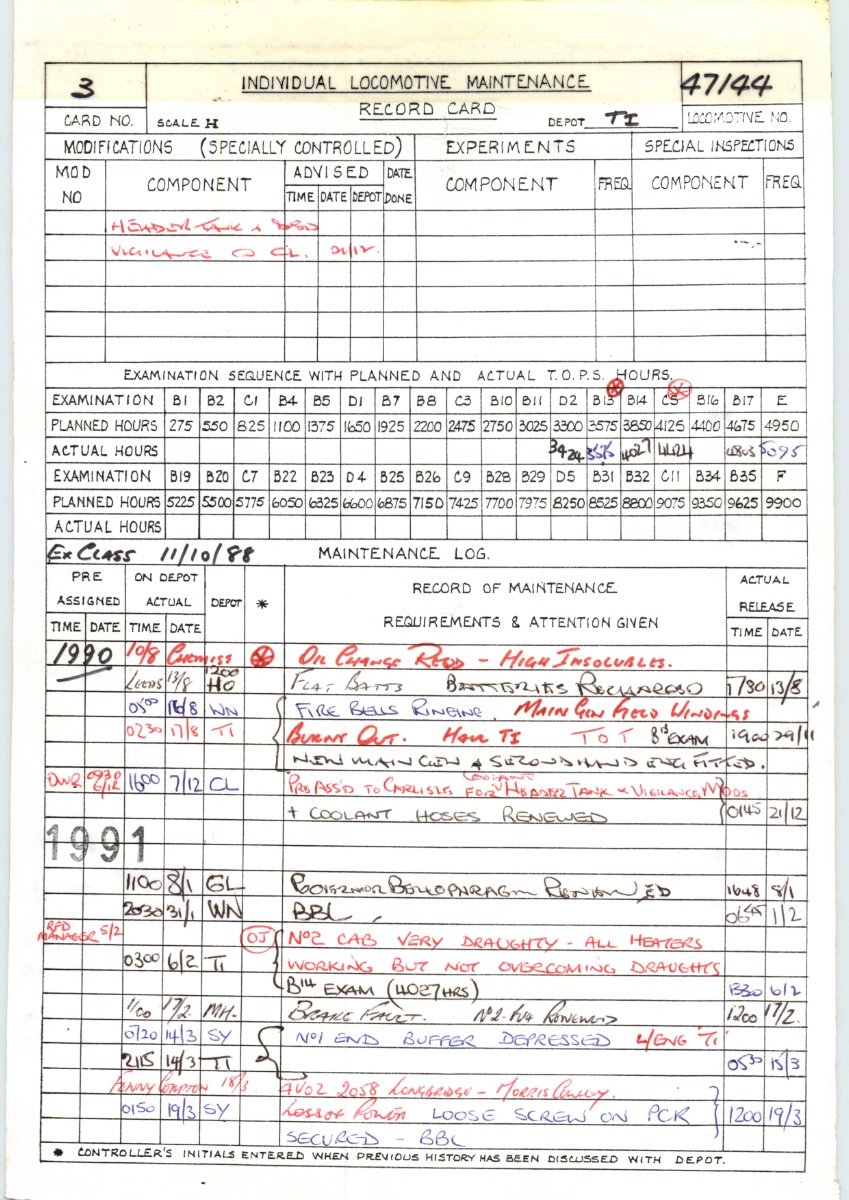 3 INDIVIDUAL LOCOMOTIVE MAINTENANCE 47144
CARD NO. SCALE H RECORD CARD DEPOT TI LOCOMOTIVE NO.
MODIFICATIONS (SPECIALLY CONTROLLED) EXPERIMENTS SPECIAL INSPECTIONS
MOD NO COMPONENT ADVISED DATE DONE COMPONENT FREQ COMPONENT FREQ
TIME DATE DEPOT
HEADER TANK & DSD
VIGILANCE CL. 21/12.
EXAMINATION SEQUENCE WITH PLANNED AND ACTUAL T.O.P.S. HOURS.
EXAMINATION B1 B2 C1 B4 B5 D1 B7 B8 C3 B10 B11 D2 B13 B14 C5 B16 B17 E
PLANNED HOURS 275 550 825 1100 1375 1650 1925 2200 2475 2750 3025 3300 3575 3850 4125 4400 4675 4950
ACTUAL HOURS 3424 3575 4027 4424 4803 5095
EXAMINATION B19 B20 C7 B22 B23 D4 B25 B26 C9 B28 B29 D5 B31 B32 C11 B34 B35 F
PLANNED HOURS 5225 5500 5775 6050 6325 6600 6875 7150 7425 7700 7975 8250 8525 8800 9075 9350 9625 9900
ACTUAL HOURS
EX CLASS 11/10/88 MAINTENANCE LOG.
PRE ASSIGNED ON DEPOT ACTUAL DEPOT * RECORD OF MAINTENANCE REQUIREMENTS & ATTENTION GIVEN ACTUAL RELEASE
TIME DATE TIME DATE TIME DATE
1990 10/8 CHEMIST OIL CHANGE REQD - HIGH INSOLUBLES.
LEEDS 13/8 1200 HO FLAT BATTS BATTERIES RECHARGED 1730 13/8
0500 16/8 WN FIRE BELLS RINGING. MAIN GEN FIELD WINDINGS
0230 17/8 TI BURNT OUT. HAUL TI TOT B13 EXAM 1900 29/11
NEW MAIN GEN & SECOND HAND ENG FITTED.
DWR 0930 6/12 1600 7/12 CL PRE ASS'D TO CARLISLE FOR COOLANT HEADER TANK & VIGILANCE MODS
+ COOLANT HOSES RENEWED 0145 21/12
1991
1100 8/1 GL GOVERNOR BELLOPHRAGM RENEWED 1648 8/1
2030 31/1 WN BBL 0645 1/2
RFD MANAGER 5/2 OJ No2 CAB VERY DRAUGHTY - ALL HEATERS
0300 6/2 TI WORKING BUT NOT OVERCOMING DRAUGHTS
B14 EXAM (4027 HRS) 1330 6/2
1100 17/2. MH. BRAKE FAULT. No2 RENEWED 1200 17/2.
0720 14/3 SY No1 END BUFFER DEPRESSED L/ENG 'TI'
2115 14/3 TI 0530 15/3
FENNY COMPTON 18/3 4V02 2058 LONGBRIDGE - MORRIS COWLEY.
0150 19/3 SY LOSS OF POWER LOOSE SCREW ON PCR 1200 19/3
SECURED - BBL
* CONTROLLER'S INITIALS ENTERED WHEN PREVIOUS HISTORY HAS BEEN DISCUSSED WITH DEPOT.